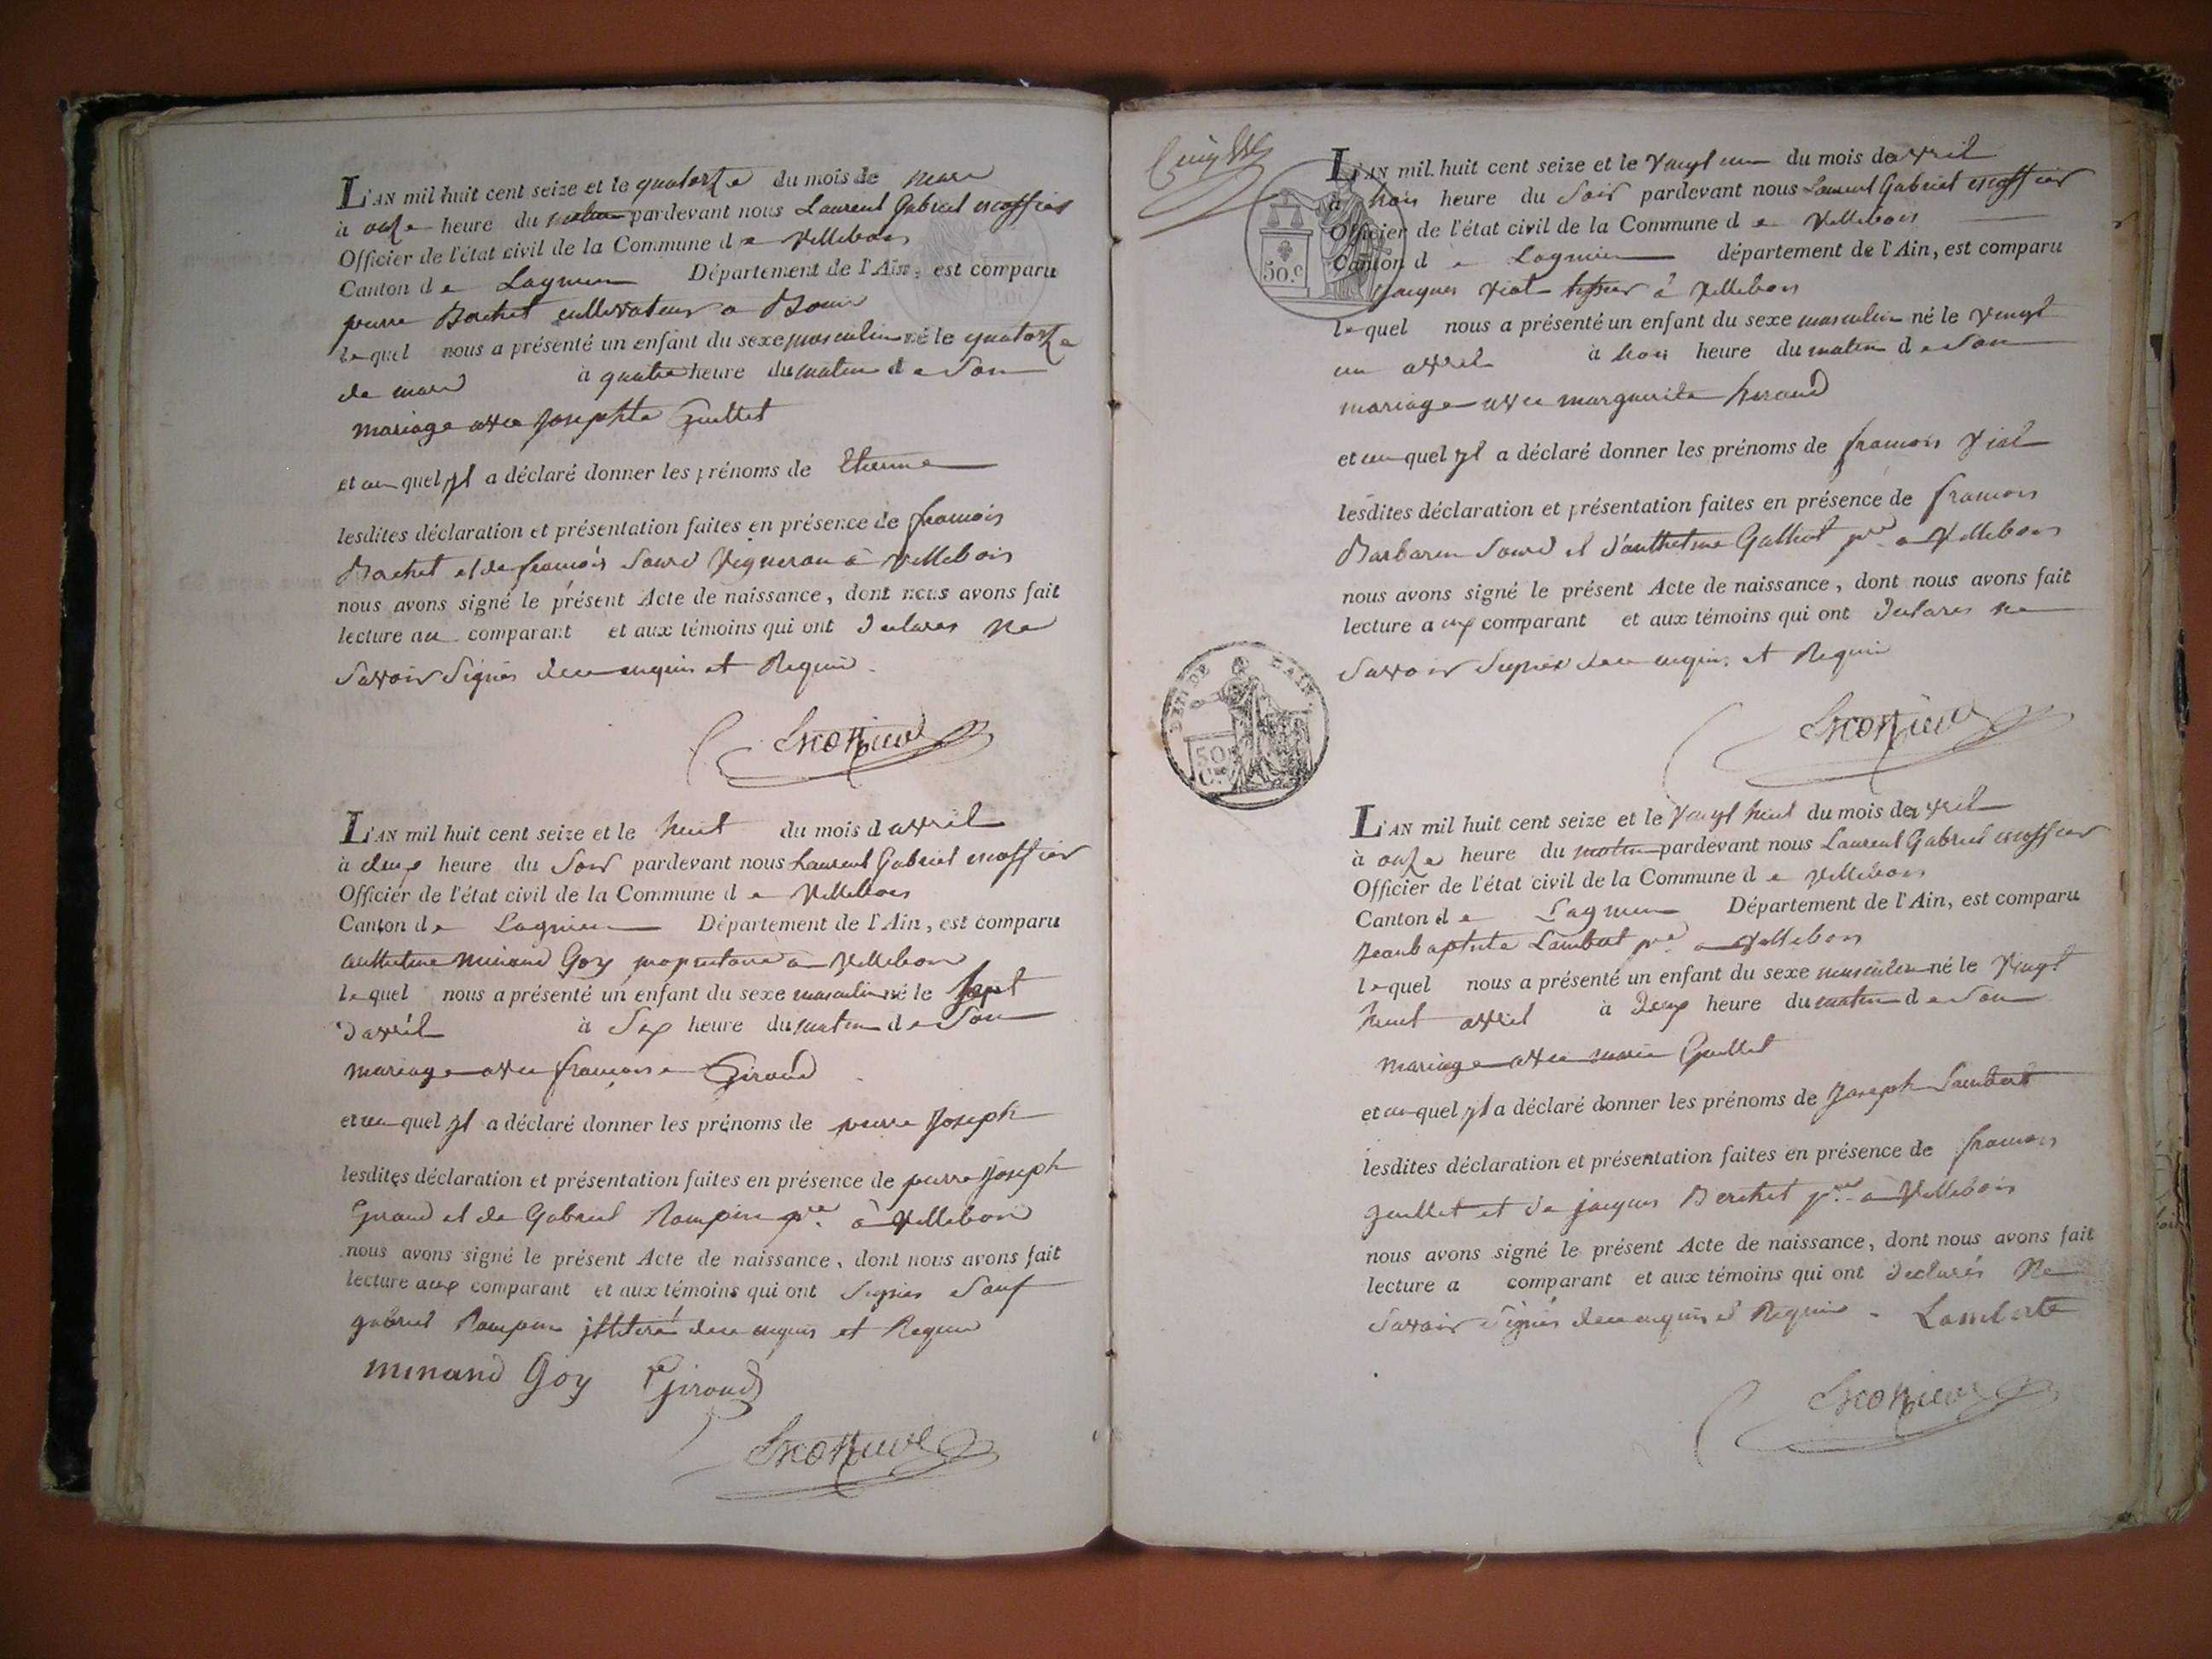 L'AN mil huit cent seize et le quatorze du mois de mars
à onze heure du matin pardevant nous Laurent Gabriel escoffier
Officier de l'état civil de la Commune de Villebois
Canton de Lagnieu Département de l'Ain, est comparu
pierre Bachet cultivateur a Bouis
lequel nous a présenté un enfant du sexe masculin né le quatorze
de mars à quatre heure du matin de son
mariage avec Josephte Guillet
et au quel yl a déclaré donner les prénoms de Etienne
lesdites déclaration et présentation faites en présence de francois
Bachet et de francois Sourd Vigneron à Villebois
nous avons signé le présent Acte de naissance, dont nous avons fait
lecture au comparant et aux témoins qui ont declarés ne
Savoir Signés de ce enquis et Requis.
Escoffier
L'AN mil huit cent seize et le huit du mois d avril
à deux heure du Soir pardevant nous Laurent Gabriel escoffier
Officier de l'état civil de la Commune de Villebois
Canton de Lagnieu Département de l'Ain, est comparu
anthelme minand Goy propriétaire à Villebois
lequel nous a présenté un enfant du sexe masculin né le Sept
d'avril à Six heure du matin de Son
mariage avec francoise Giroud
et au quel yl a déclaré donner les prénoms de pierre Joseph
lesdites déclaration et présentation faites en présence de pierre Joseph
Giroud et de Gabriel Rampin pre à Villebois
nous avons signé le présent Acte de naissance, dont nous avons fait
lecture aux comparant et aux témoins qui ont Signés Sauf
gabriel Rampin jlliteré de ce enquis et Requis
minand Goy Giroud
Escoffier
L'AN mil huit cent seize et le Vingt un du mois de avril
à trois heure du Soir pardevant nous Laurent Gabriel escoffier
Officier de l'état civil de la Commune de Villebois
Canton de Lagnieu département de l'Ain, est comparu
50.c
Jacques Vial à Villebois
lequel nous a présenté un enfant du sexe masculin né le Vingt
un avril à trois heure du matin de Son
mariage avec marguerite
et au quel yl a déclaré donner les prénoms de francois Vial
lesdites déclaration et présentation faites en présence de francois
Barbarin Sourd et d'anthelme Galliot pre a Villebois
nous avons signé le présent Acte de naissance, dont nous avons fait
lecture a ux comparant et aux témoins qui ont declarés ne
Savoir Signés de ce enquis et Requis
DEPT DE L'AIN
50 C.
Escoffier
L'AN mil huit cent seize et le Vingt huit du mois de avril
à onze heure du matin pardevant nous Laurent Gabriel escoffier
Officier de l'état civil de la Commune de Villebois
Canton de Lagnieu Département de l'Ain, est comparu
Jean baptiste Lambert pre a Villebois
lequel nous a présenté un enfant du sexe masculin né le Vingt
huit avril à deux heure du matin de Son
mariage avec marie Guillet
et au quel yl a déclaré donner les prénoms de Joseph Lambert
lesdites déclaration et présentation faites en présence de francois
guillet et de jacques Berchet pre a Villebois
nous avons signé le présent Acte de naissance, dont nous avons fait
lecture a comparant et aux témoins qui ont declarés Ne
Savoir Signés de ce enquis et Requis - Lamberte
Escoffier